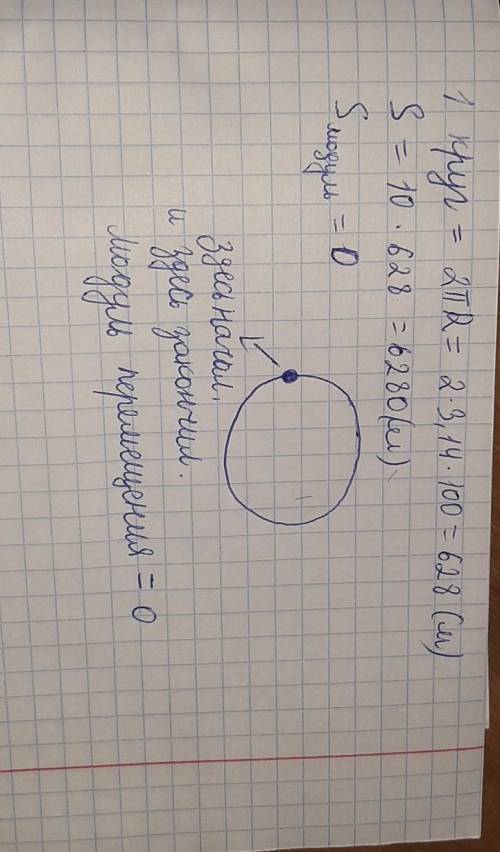 1 круг = 2πR = 2·3,14·100 = 628 (м)
S = 10·628 = 6280 (м).
S модуль = 0
Здесь начал,
и здесь закончил.
Модуль перемещения = 0